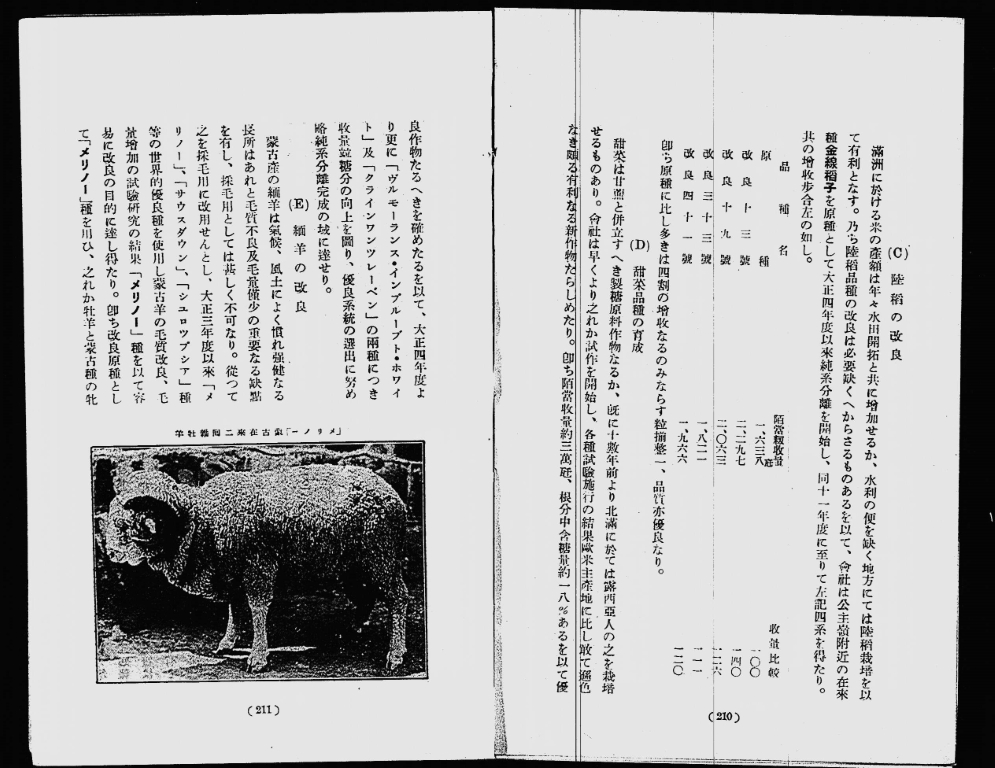 (C) 陸稻の改良
滿洲に於ける米の產額は年々水田開拓と共に增加せるか、水利の便を缺く地方にては陸稻栽培を以
て有利となす。乃ち陸稻品種の改良は必要缺くへからさるものあるを以て、會社は公主嶺附近の在來
種金線稻子を原種として大正四年度以來純系分離を開始し、同十一年度に至りて左記四系を得たり。
共の增收步合左の如し。
品種名 陌當籾收量 收量比較
原種 一、六三八瓩 一〇〇
改良十三號 二、二九七 一四〇
改良十九號 二、〇六三 一二六
改良三十三號 一、八二一 一一一
改良四十一號 一、九六六 一二〇
卽ち原種に比し多きは四割の增收なるのみならす粒揃整一、品質亦優良なり。
(D) 甜菜品種の育成
甜菜は甘蔗と併立すへき製糖原料作物なるか、旣に十數年前より北滿に於ては露西亞人の之を栽培
せるものあり。會社は早くより之れか試作を開始し、各種試驗施行の結果歐米主產地に比し敢て遜色
なき頗る有利なる新作物たらしめたり。卽ち陌當收量約三萬瓩、根分中含糖量約一八％あるを以て優
(210)
良作物たるへきを確めたるを以て、大正四年度よ
り更に「ヴルモーランス・インプルーブト・ホワイ
ト」及「クラインワンツレーベン」の兩種につき
收量竝糖分の向上を圖り、優良系統の選出に努め
略純系分離完成の域に達せり。
(E) 緬羊の改良
蒙古產の緬羊は氣候、風土によく慣れ强健なる
長所はあれと毛質不良及毛量僅少の重要なる缺點
を有し、採毛用としては甚しく不可なり。從つて
之を採毛用に改用せんとし、大正三年度以來「メ
リノー」、「サウスダウン」、「シユロツプシア」種
等の世界的優良種を使用し蒙古羊の毛質改良、毛
量增加の試驗硏究の結果「メリノー」種を以て容
易に改良の目的に達し得たり。卽ち改良原種とし
て「メリノー」種を用ひ、之れか牡羊と蒙古種の牝
(211)